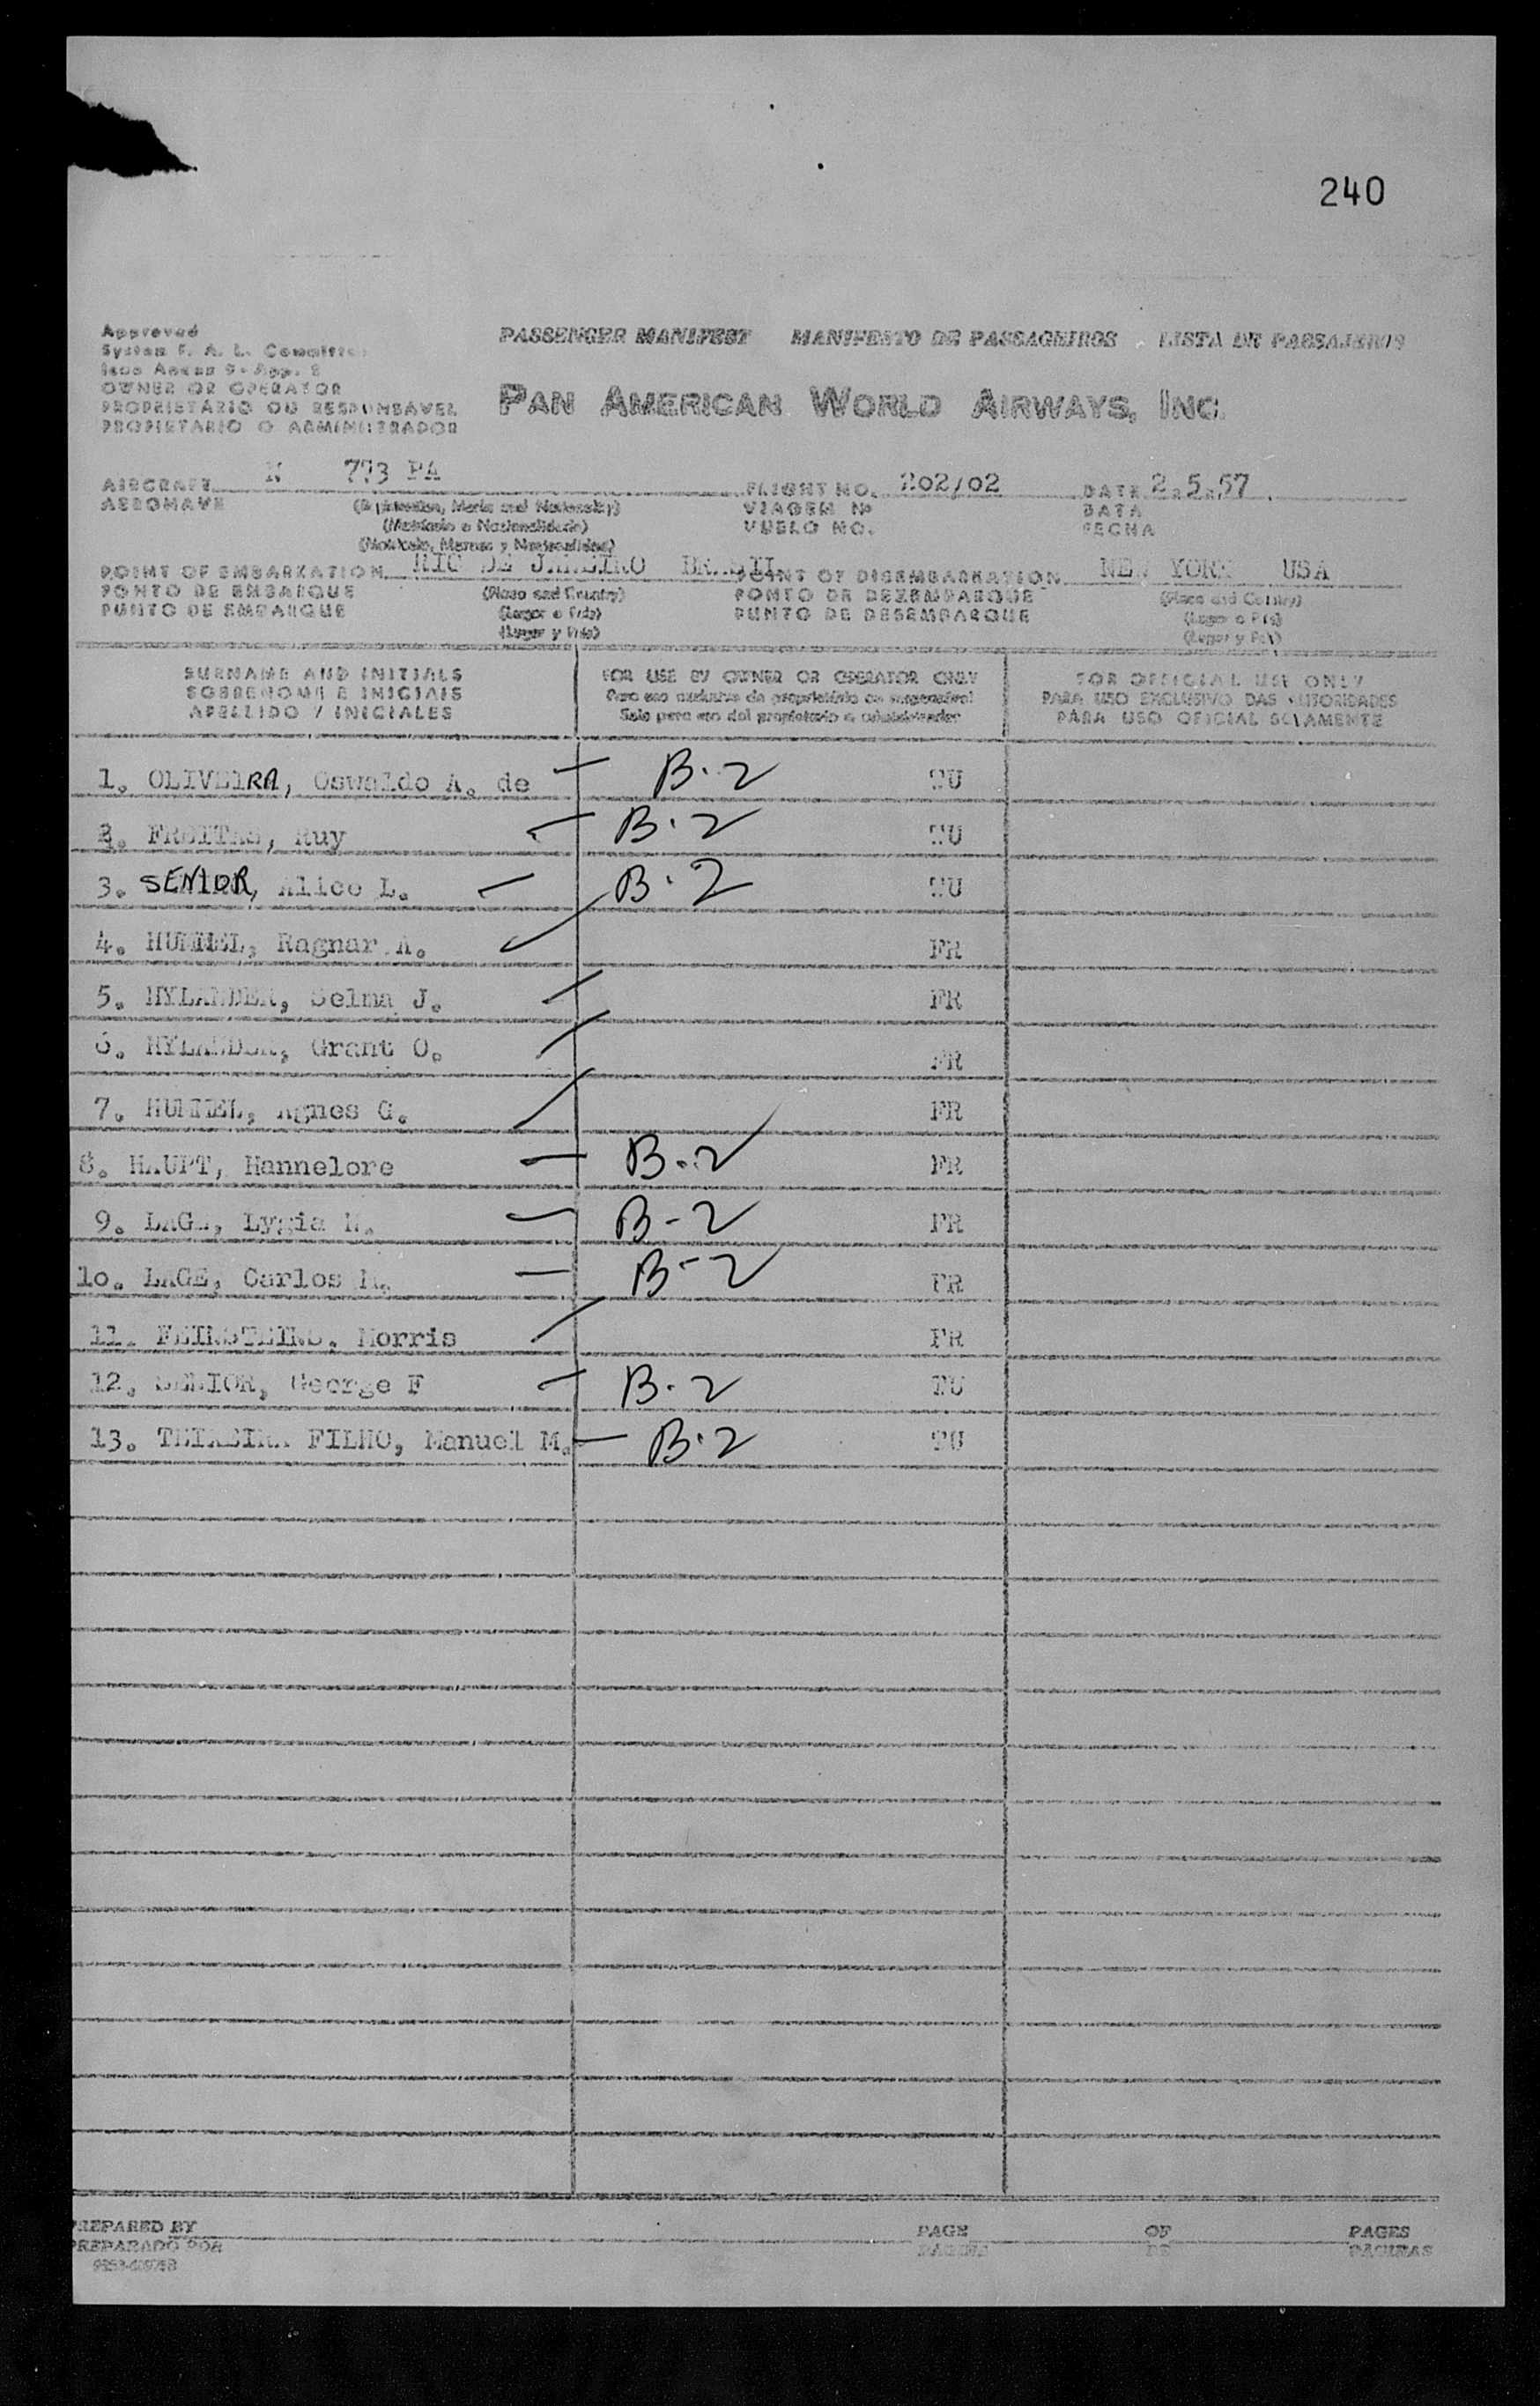 240
Approved
System F. A. L. Committee
Icao Annex 9 - App. 2
OWNER OR OPERATOR
PROPRIETÁRIO OU RESPONSAVEL
PROPIETARIO O ADMINISTRADOR
PASSENGER MANIFEST MANIFESTO DE PASSAGEIROS LISTA DE PASAJEROS
PAN AMERICAN WORLD AIRWAYS, INC.
AIRCRAFT N 773 PA FLIGHT NO. 202/02 DATE 2.5.57
AERONAVE VIAGEM Nº DATA
(Matrícula e Nacionalidade) VUELO NO. FECHA
(Matrícula, Marcas y Nacionalidad)
POINT OF EMBARKATION RIO DE JANEIRO BRASIL POINT OF DISEMBARKATION NEW YORK USA
PONTO DE EMBARQUE (Place and Country) PONTO DE DEZEMBARQUE (Place and Country)
PUNTO DE EMBARQUE (Lugar e País) PUNTO DE DESEMBARQUE (Lugar e País)
(Lugar y País) (Lugar y País)
SURNAME AND INITIALS FOR USE BY OWNER OR OPERATOR ONLY FOR OFFICIAL USE ONLY
SOBRENOME E INICIAIS Para uso exclusivo do proprietário ou responsável PARA USO EXCLUSIVO DAS AUTORIDADES
APELLIDO Y INICIALES Solo para uso del propietario o administrador PARA USO OFICIAL SOLAMENTE
1. OLIVEIRA, Oswaldo A. de B-2 TU
2. FREITAS, Ruy B-2 TU
3. SENIOR, Alice L. B-2 TU
4. HUMMEL, Ragnar A. FR
5. HYLANDER, Selma J. FR
6. HYLANDER, Grant O. FR
7. HUMMEL, Agnes G. FR
8. HAUPT, Hannelore B-2 FR
9. LAGE, Lygia M. B-2 FR
10. LAGE, Carlos M. B-2 FR
11. FEINSTEINS, Morris FR
12. SENIOR, George F B-2 TU
13. TEIXEIRA FILHO, Manuel M. B-2 TU
PREPARED BY PAGE OF PAGES
PREPARADO POR PAGINA DE PAGINAS